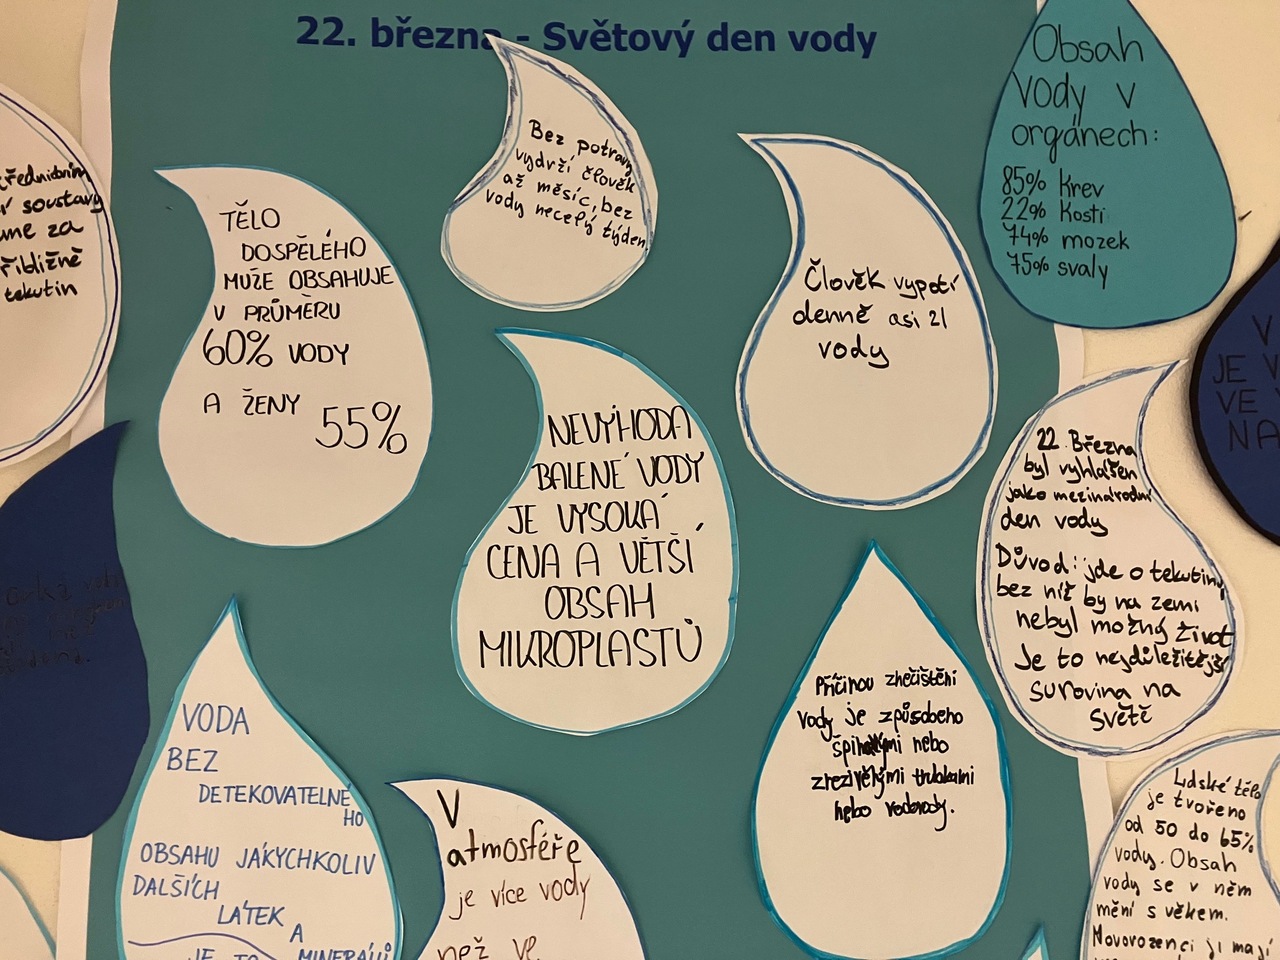 22. března - Světový den vody
Bez potravy
vydrží člověk
až měsíc, bez
vody necelý týden.
Obsah
vody v
orgánech:
85% krev
22% kosti
74% mozek
75% svaly
soustavy
za
tekutin
TĚLO
DOSPĚLÉHO
MUŽE OBSAHUJE
V PRŮMĚRU
60% VODY
A ŽENY
55%
Člověk vypotí
denně asi 2l
vody
NEVÝHODA
BALENÉ VODY
JE VYSOKÁ
CENA A VĚTŠÍ
OBSAH
MIKROPLASTŮ
22. Března
byl vyhlášen
jako mezinárodní
den vody
Důvod: jde o tekutinu
bez níž by na zemi
nebyl možný život
Je to nejdůležitější
surovina na
světě
V
JE V
VE V
NA
VODA
BEZ
DETEKOVATELNÉ
HO
OBSAHU JAKÝCHKOLIV
DALŠÍCH
LÁTEK
A
JE TO MINERÁLŮ
V
atmosféře
je více vody
než ve
Příčinou znečištění
vody je způsobeno
nebo
zrezivělými trubkami
nebo
Lidské tělo
je tvořeno
od 50 do 65%
vody. Obsah
vody se v něm
mění s věkem.
Novorozenci ji mají